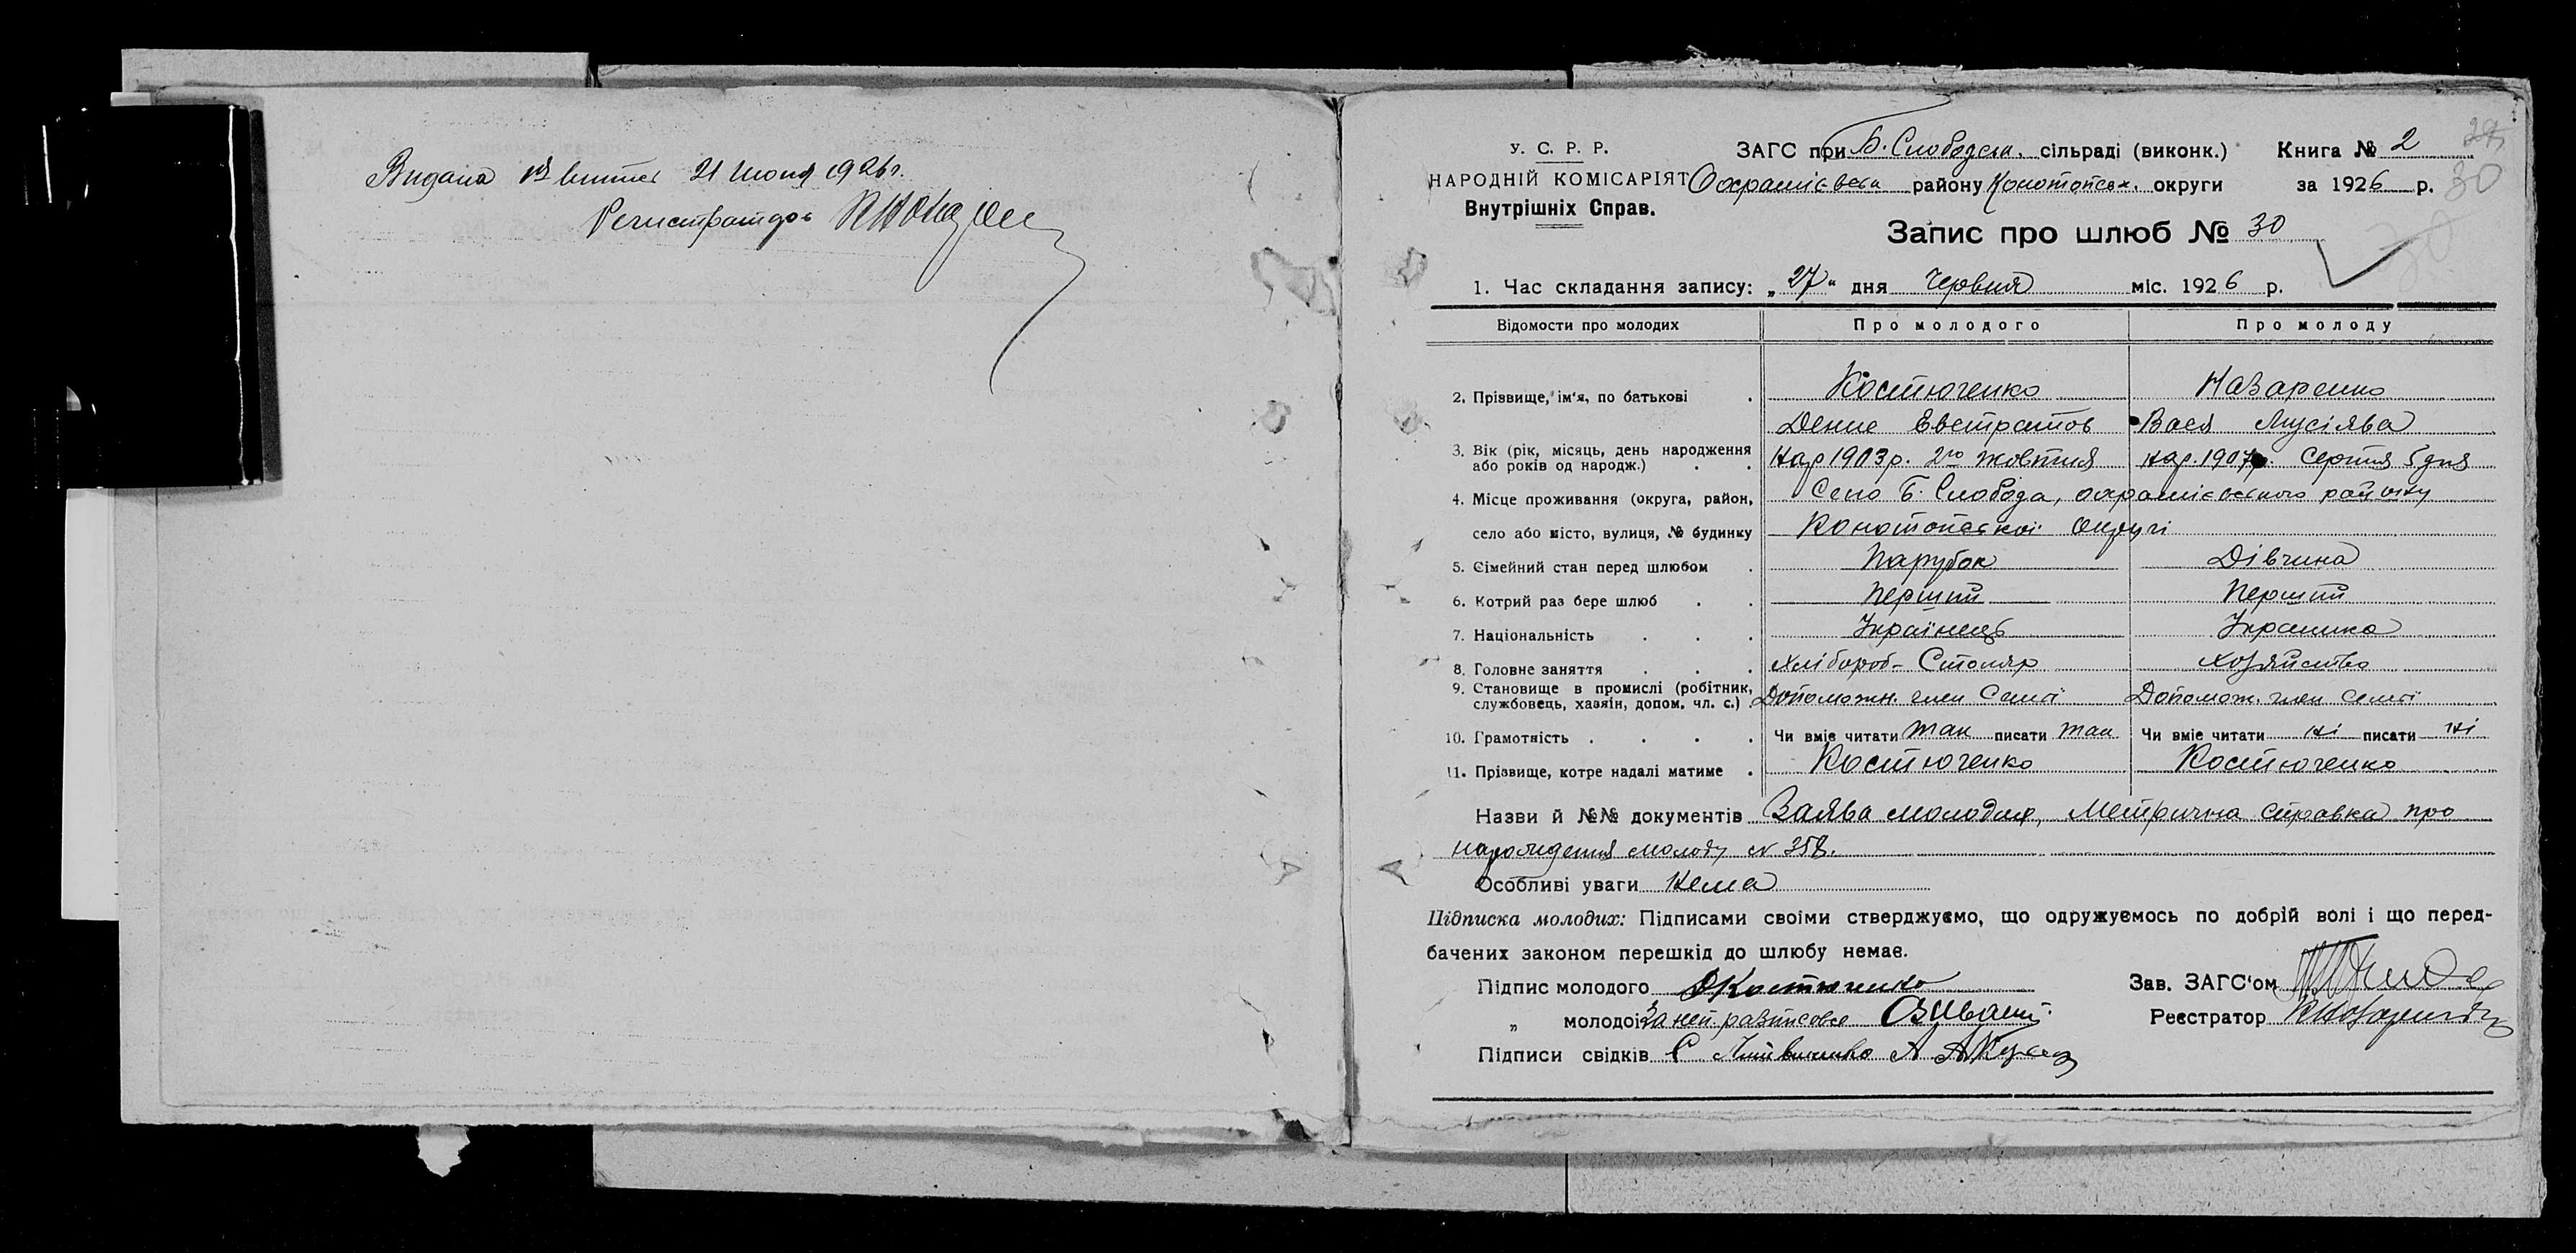 Видана 21 июня 1926 г.
Регистратор
У. С. Р. Р.
НАРОДНІЙ КОМІСАРІЯТ
Внутрішніх Справ.
ЗАГС при Б. Слободск. сільраді (виконк.) Книга № 2
району Конотопськ. округи за 1926 р.
30
Запис про шлюб № 30
1. Час складання запису: „27“ дня Червня міс. 1926 р.
Відомости про молодих Про молодого Про молоду
2. Прізвище, ім‘я, по батькові Костюченко Назаренко
Денис Евстратов Васа Мусіява
3. Вік (рік, місяць, день народження або років од народж.) Нар 1903 р. 2го жовтня нар. 1907 р. Серпня 5 дня
4. Місце проживання (округа, район, Село Б. Слобода, району
село або місто, вулиця, № будинку Конотопської округі
5. Сімейний стан перед шлюбом Парубок Дівчина
6. Котрий раз бере шлюб Перший Перший
7. Національність Українець Українка
8. Головне заняття Хлібороб-Столяр хозяйство
9. Становище в промислі (робітник, службовець, хазяїн, допом. чл. с.) Допоможн. член Семії Допомож. член семії
10. Грамотність Чи вміє читати так писати так Чи вміє читати ні писати ні
11. Прізвище, котре надалі матиме Костюченко Костюченко
Назви й №№ документів Заява молодих, Метрична справка про
нарождения молод. № 358.
Особливі уваги Нема
Підписка молодих: Підписами своїми стверджуємо, що одружуємось по добрій волі і що перед-
бачених законом перешкід до шлюбу немає.
Підпис молодого ДКостюченко Зав. ЗАГС‘ом
„ молодої За неї Реєстратор
Підписи свідків